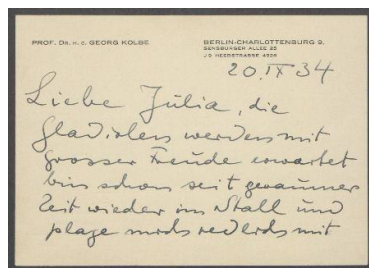 PROF. DR. H. C. GEORG KOLBE
BERLIN-CHARLOTTENBURG 9,
SENSBURGER ALLEE 25
J 9 HEERSTRASSE 4209
20. IX 34
Liebe Julia, die
Gladiolen werden mit
grosser Freude erwartet
bin schon seit geraumer
Zeit wieder im Stall und
plage mich redlich mit